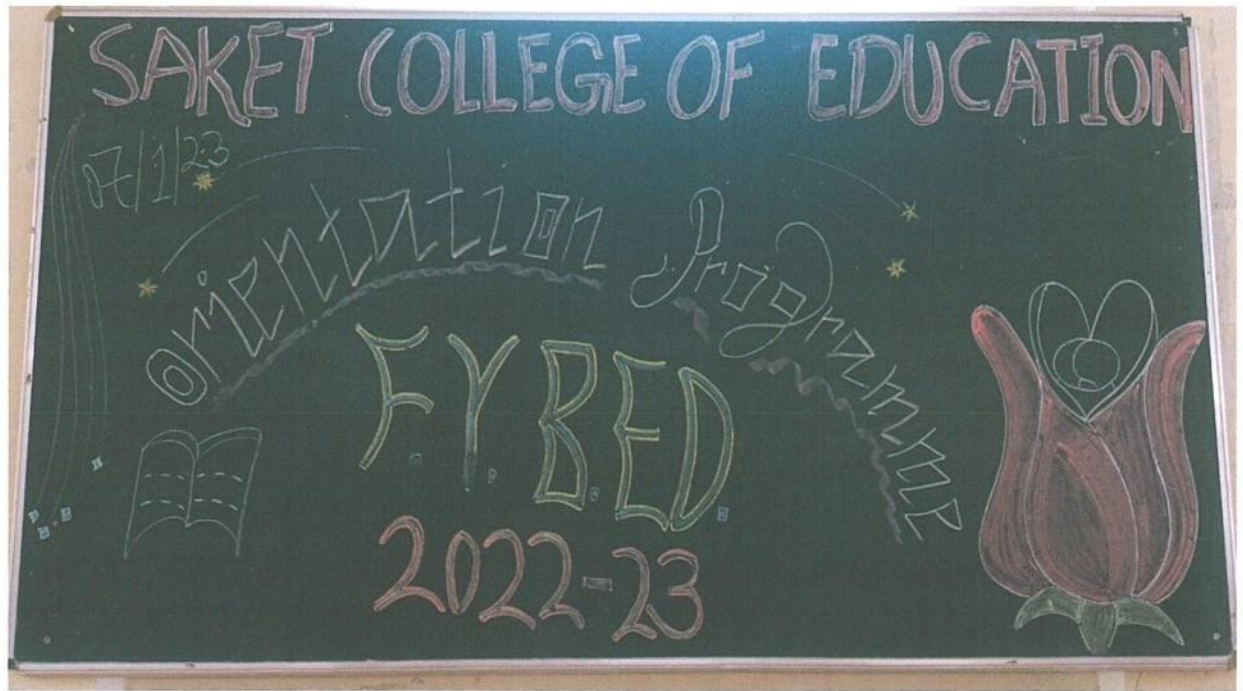 SAKET COLLEGE OF EDUCATION
07/1/23
Orientation Programme
F.Y.B.ED.
2022-23